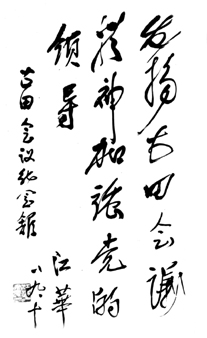 发扬古田会议
精神加强党的
领导
古田会议纪念馆
江華
八九、十